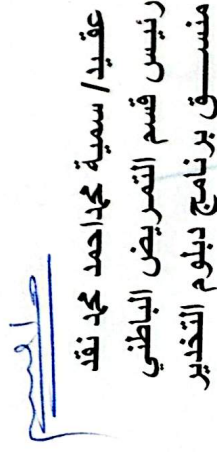 عقيد/ سمية محمد احمد محمد نقد
رئيس قسم التمريض الباطني
منسق برنامج دبلوم التخدير